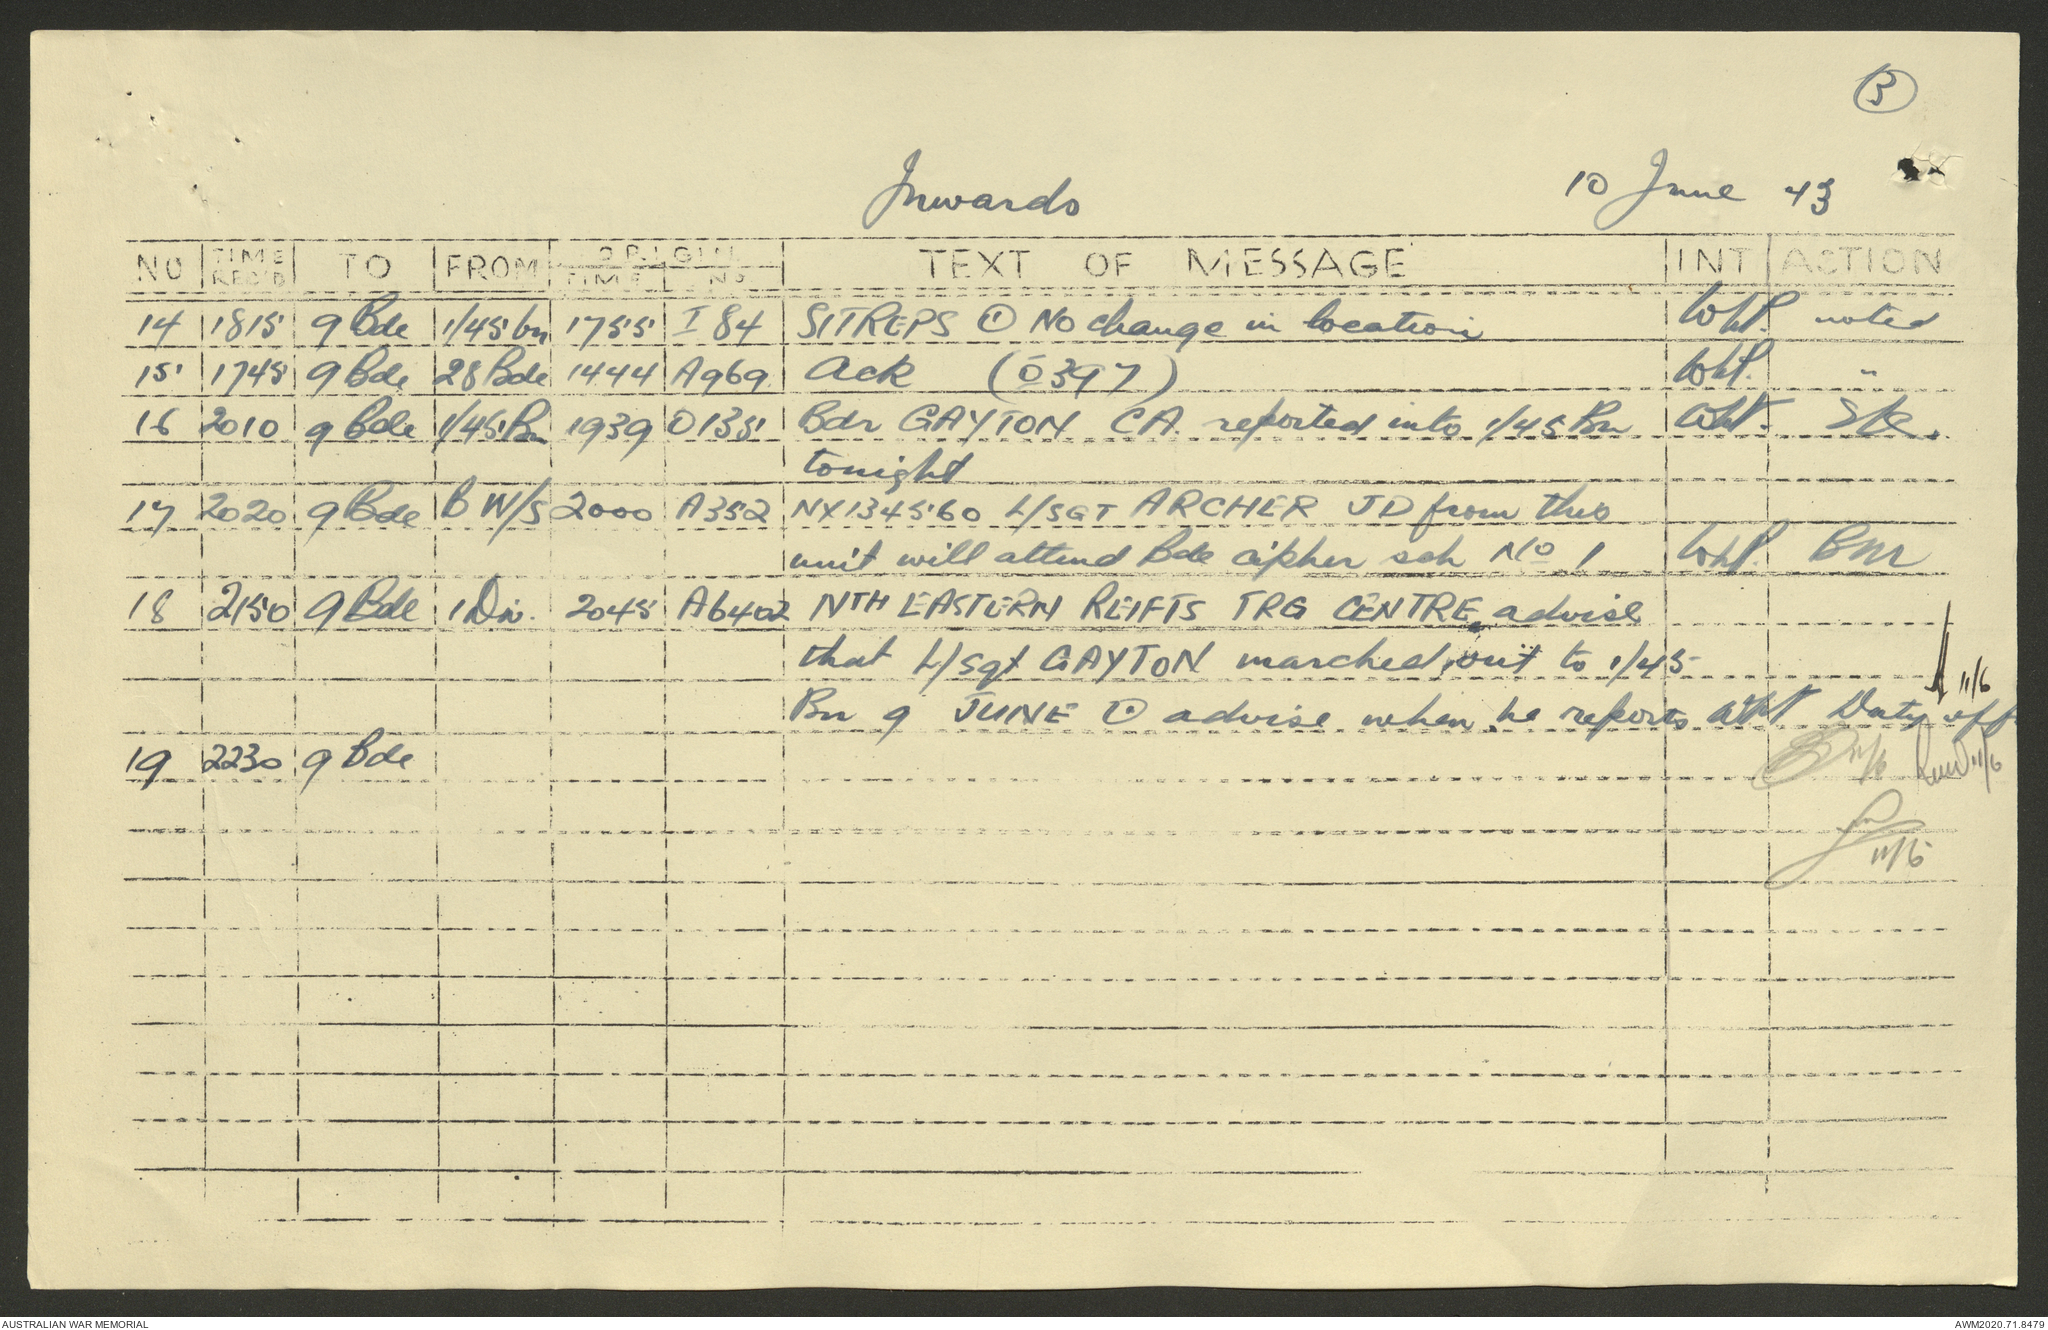 3
Inwards 10 June 43
NO TIME REC'D TO FROM ORIGIN TIME NO TEXT OF MESSAGE INT ACTION
14 1815 9 Bde 1/45 bn 1755 I 84 SITREPS ① No change in location WHP. noted
15 1745 9 Bde 28 Bde 1444 A969 Ack (O397) WHP. "
16 2010 9 Bde 1/45 Bn 1939 O135 Bdr GAYTON CA. reported into 1/45 Bn WHP.
tonight
17 2020 9 Bde B W/S 2000 A352 NX134560 L/SGT ARCHER JD from this
unit will attend Bde cipher sch No 1 WHP. BMr
18 2150 9 Bde 1 Div. 2045 A6402 NTH EASTERN REIFTS TRG CENTRE advise
that L/sgt GAYTON marched out to 1/45
11/6
Bn 9 JUNE ⊙ advise when he reports WHP Duty off
19 2230 9 Bde
11/6 11/6
11/6
AUSTRALIAN WAR MEMORIAL AWM2020.71.8479